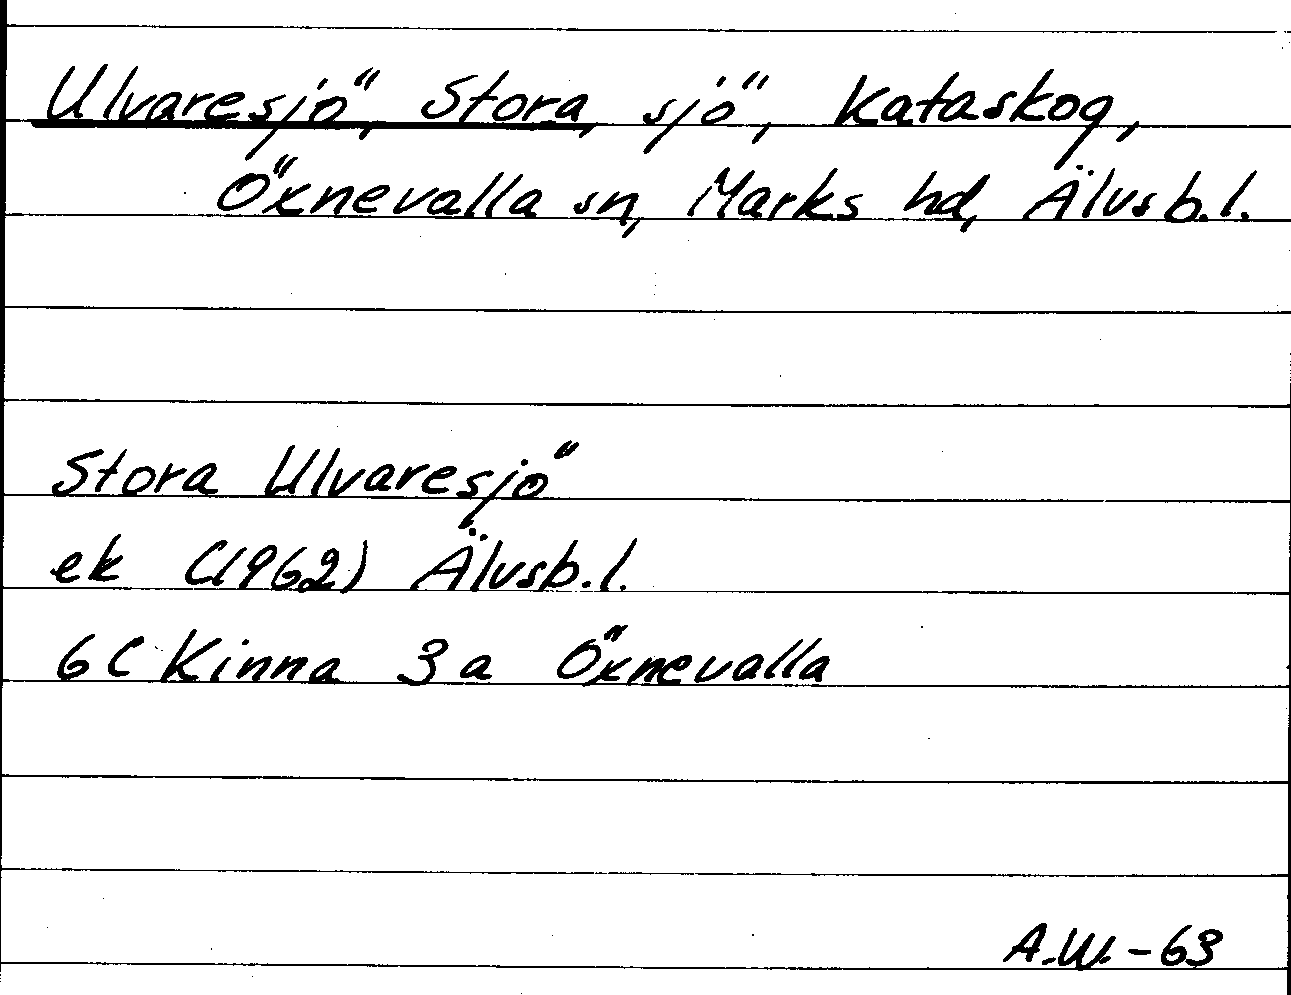 Ulvaresjö, Stora, sjö, Kataskog,
Öxnevalla sn, Marks hd, Älvsb.l.
Stora Ulvaresjö
ek (1962) Älvsb.l.
6C Kinna 3a Öxnevalla
A.W.-63